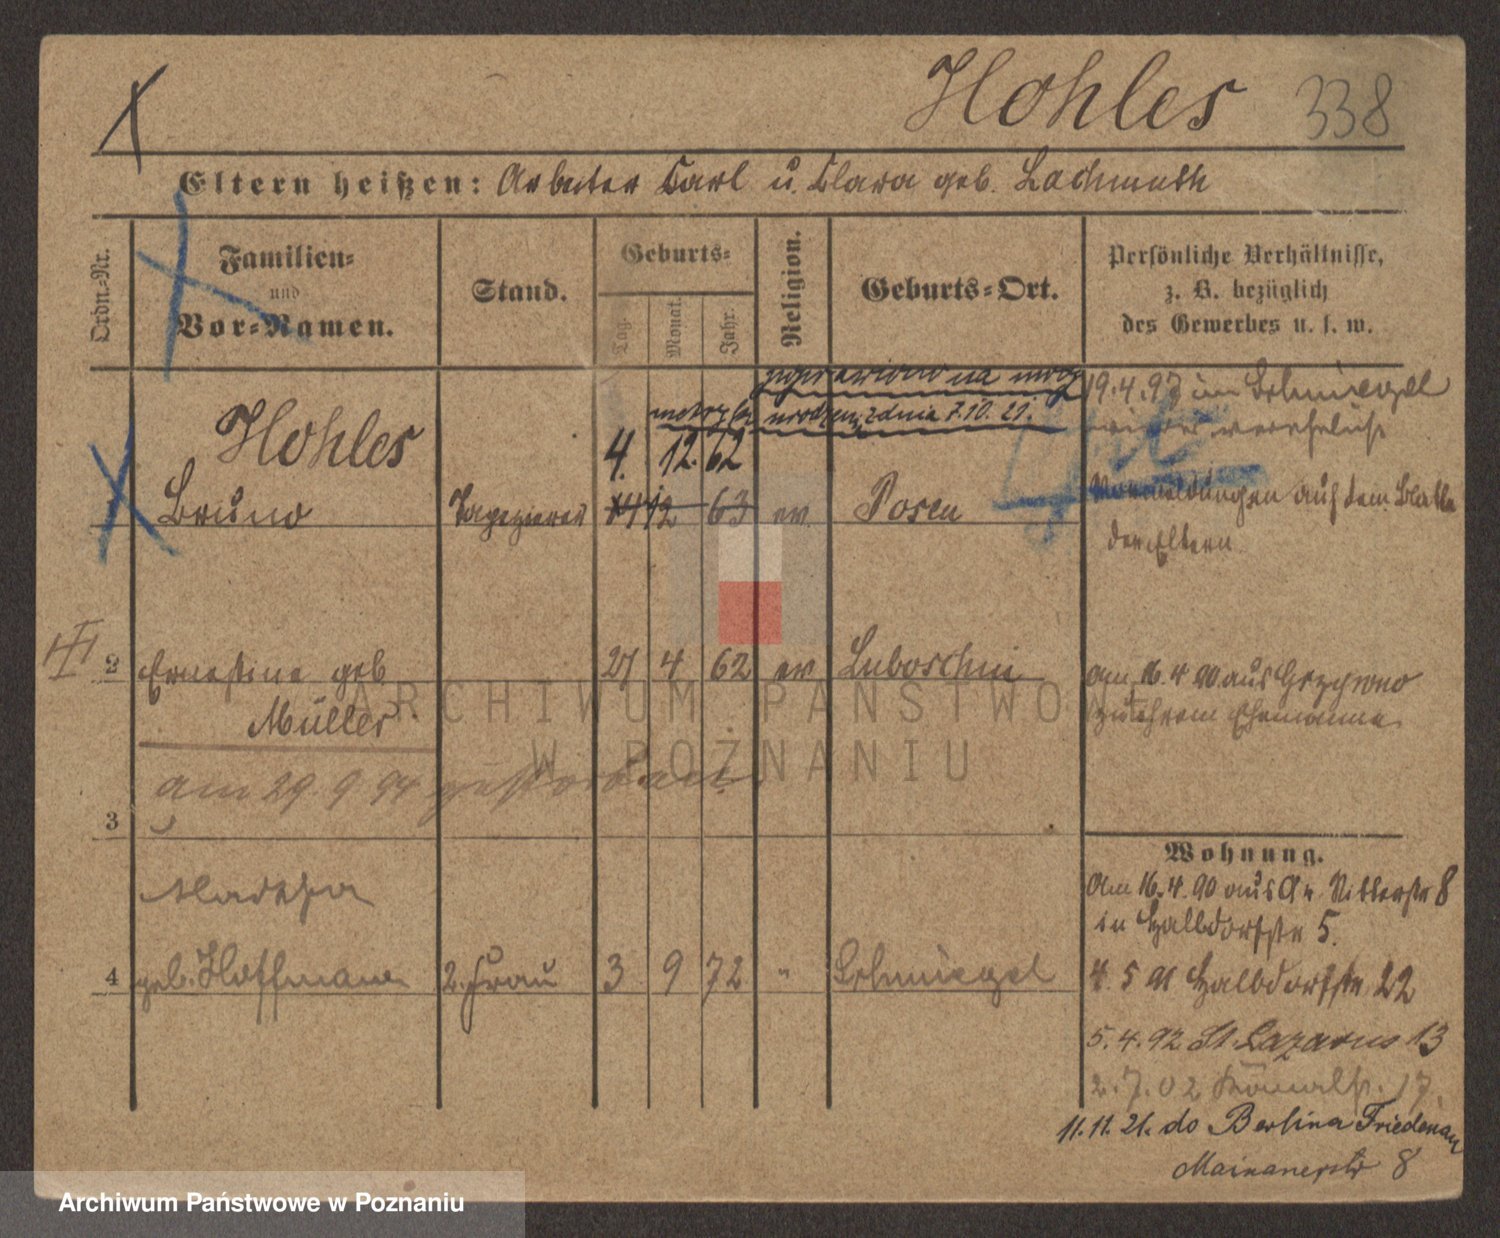 Hohles 338
Eltern heißen: Arbeiter Carl u. Clara geb. Lachmuth
Ordn.-Nr.
Familien-
und
Vor-Namen.
Stand.
Geburts-
Tag.
Monat.
Jahr.
Religion.
Geburts-Ort.
Persönliche Verhältnisse,
z. B. bezüglich
des Gewerbes u. s. w.
poprawiono na mocy
metryki urodzen, z dnia 7.10.21.
19.4.97 in Schmiegel
wieder verehelicht
Hohles
4. 12. 62
Bruno Tapezierer 14 12 63 ev. Posen
Vormeldungen auf dem Blatte
der Eltern.
2 Ernestine geb Müller 27 4 62 ev Luboschin
am 16.4.90 aus
zu ihrem Ehemanne.
am 29.9.94 gestorben.
3
Wohnung.
Am 16.4.90 aus Gr. Ritterstr 8
in Halbdorfstr 5.
Martha
4 geb. Hoffmann 2. Frau 3 9 72 " Schmiegel
4.5.91 Halbdorfstr 22
5.4.92 St. Lazarus 13
2.7.02 17.
11.11.21. do Berlina Friedenau
8
ARCHIWUM PAŃSTWOWE
W POZNANIU
Archiwum Państwowe w Poznaniu